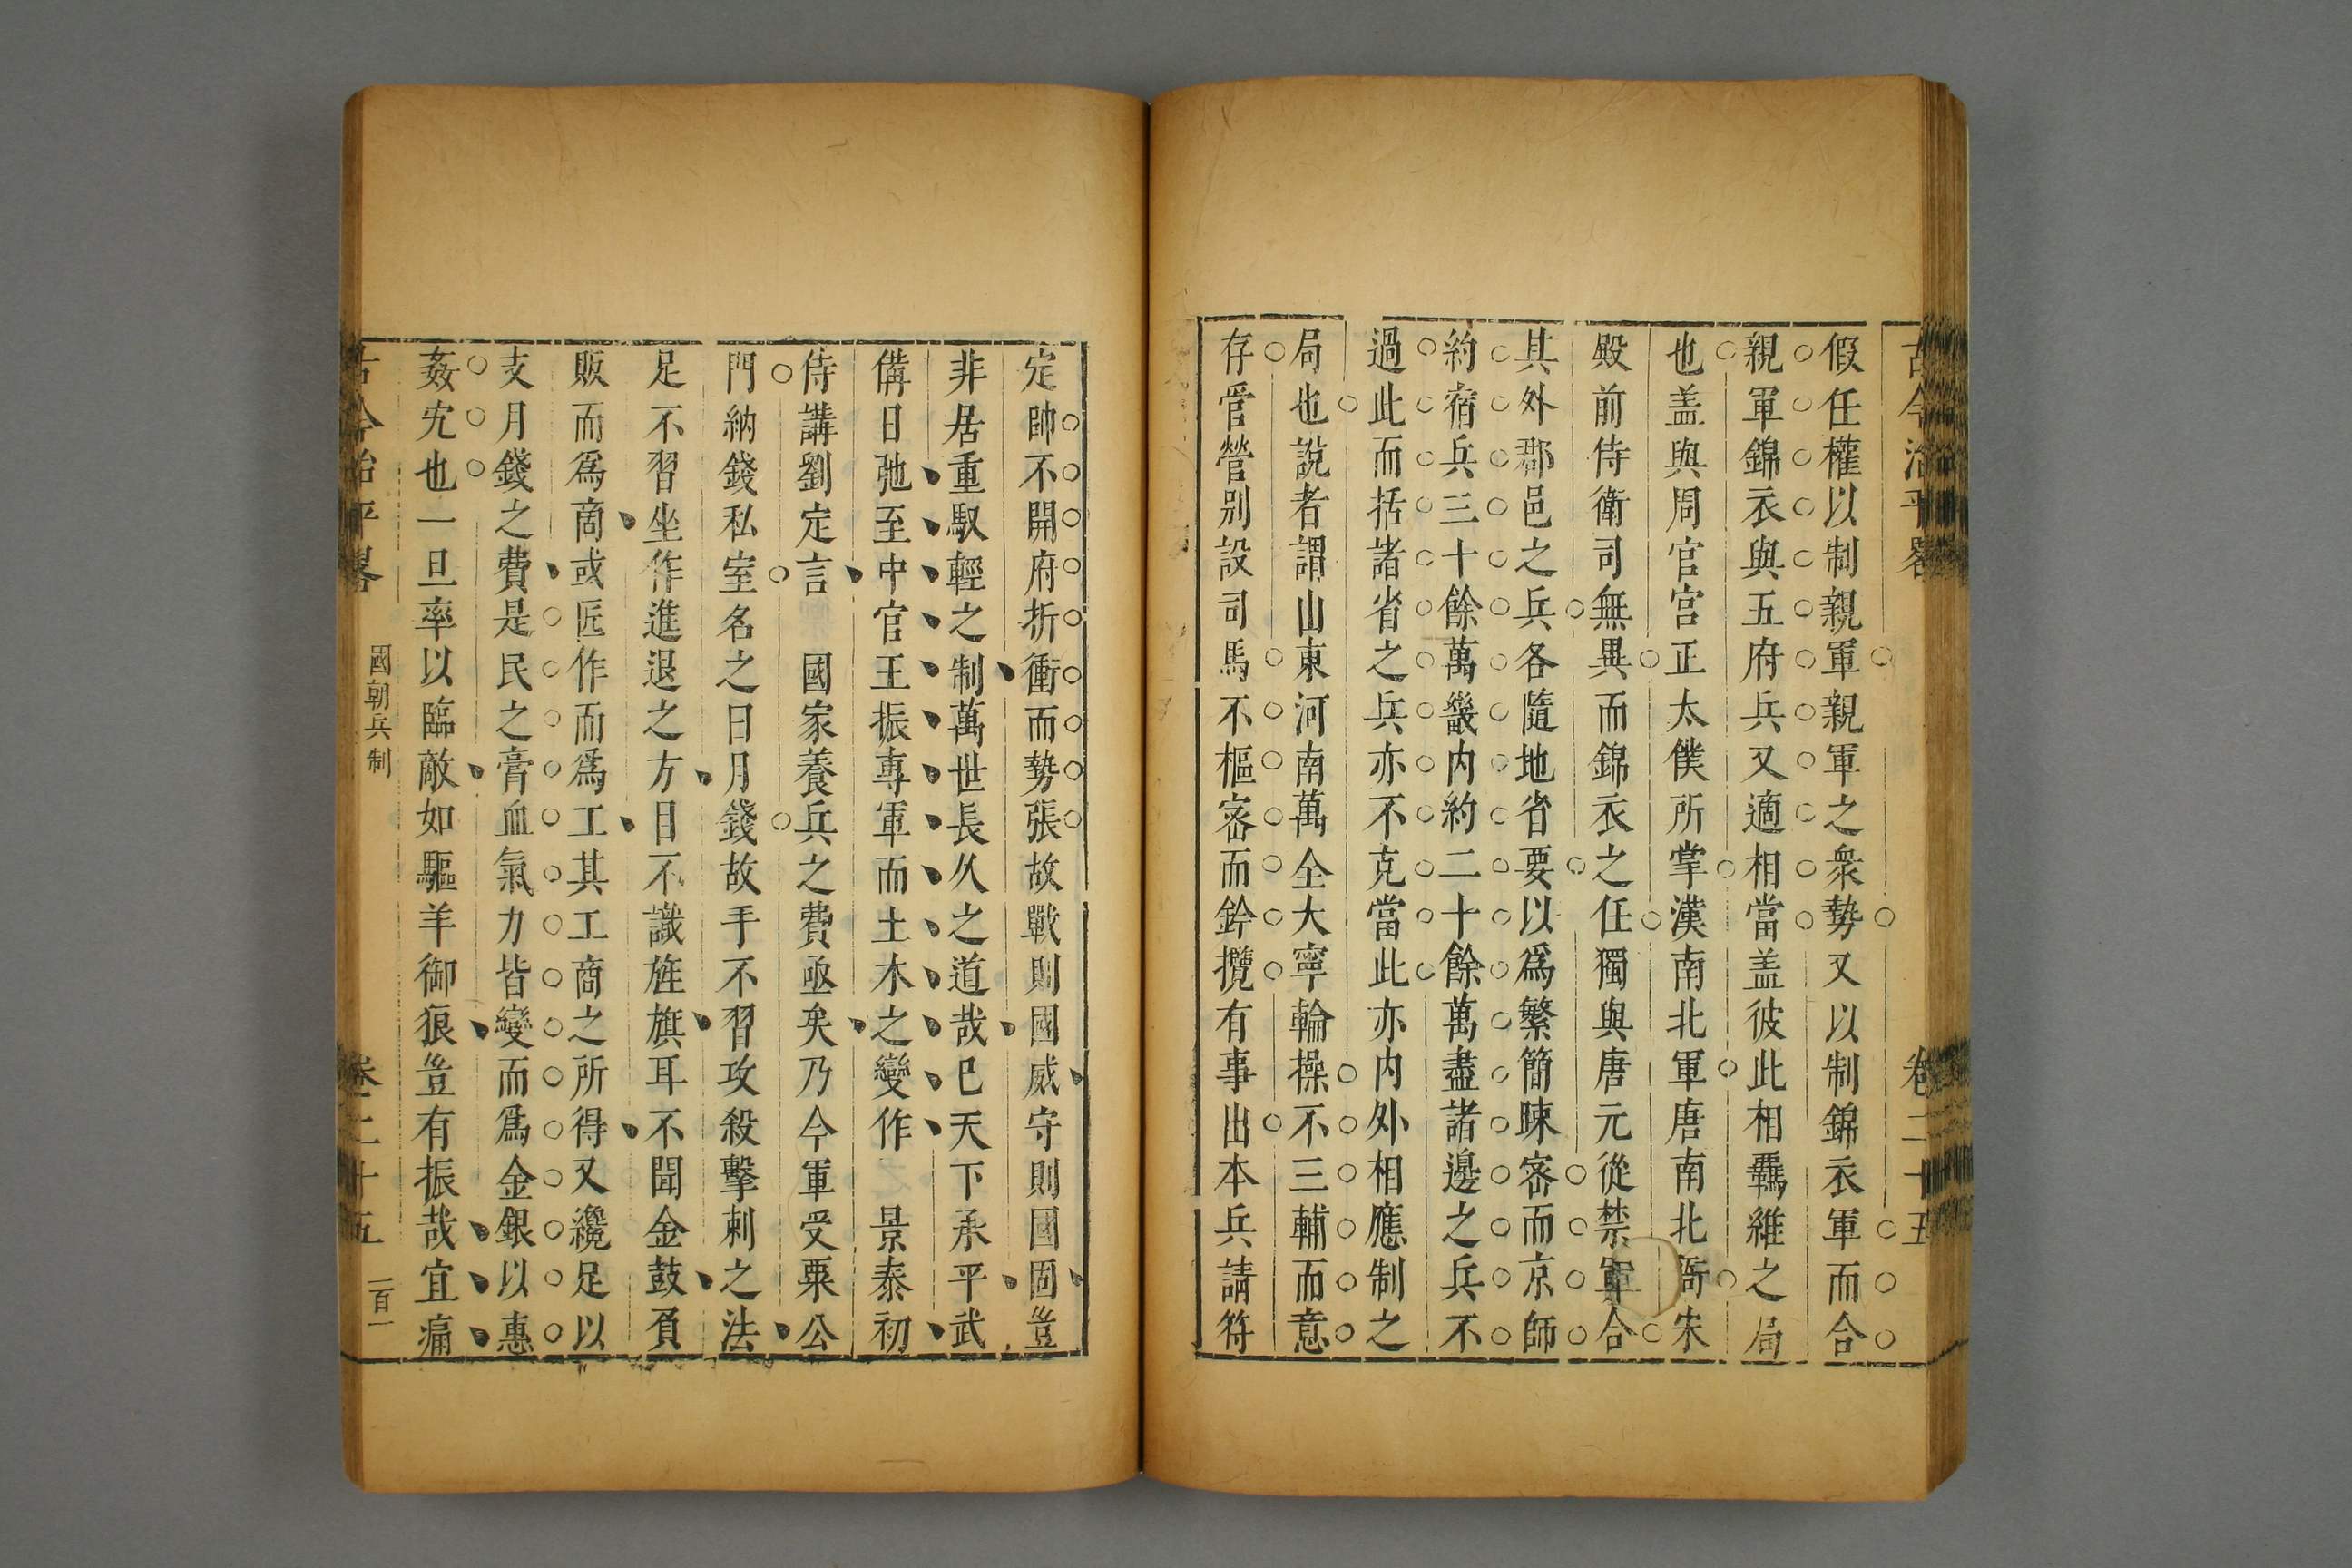 古今治平畧　卷二十五
假任權以制親軍親軍之衆勢又以制錦衣軍而合
親軍錦衣與五府兵又適相當盖彼此相羈維之局
也盖與周官宮正太僕所掌漢南北軍唐南北衙宋
殿前侍衛司無異而錦衣之任獨與唐元從禁軍合
其外郡邑之兵各隨地省要以爲繁簡踈宻而京師
約宿兵三十餘萬畿内約二十餘萬盡諸邊之兵不
過此而括諸省之兵亦不克當此亦内外相應制之
局也說者謂山東河南萬全大寧輪操不三輔而意
存官營别設司馬不樞宻而鈐攬有事出本兵請符
定帥不開府折衝而勢張故戰則國威守則國固豈
非居重馭輕之制萬世長久之道哉已天下承平武
備日弛至中官王振專軍而土木之變作　景泰初
侍講劉定言　國家養兵之費亟矣乃今軍受粟公
門納錢私室名之日月錢故手不習攻殺擊刺之法
足不習坐作進退之方目不識旌旗耳不聞金鼓負
販而爲啇或匠作而爲工其工商之所得又纔足以
支月錢之費是民之膏血氣力皆變而爲金銀以惠
姦宄也一旦率以臨敵如驅羊御狼豈有振哉宜痛
古今治平畧　國朝兵制　卷二十五　一百一